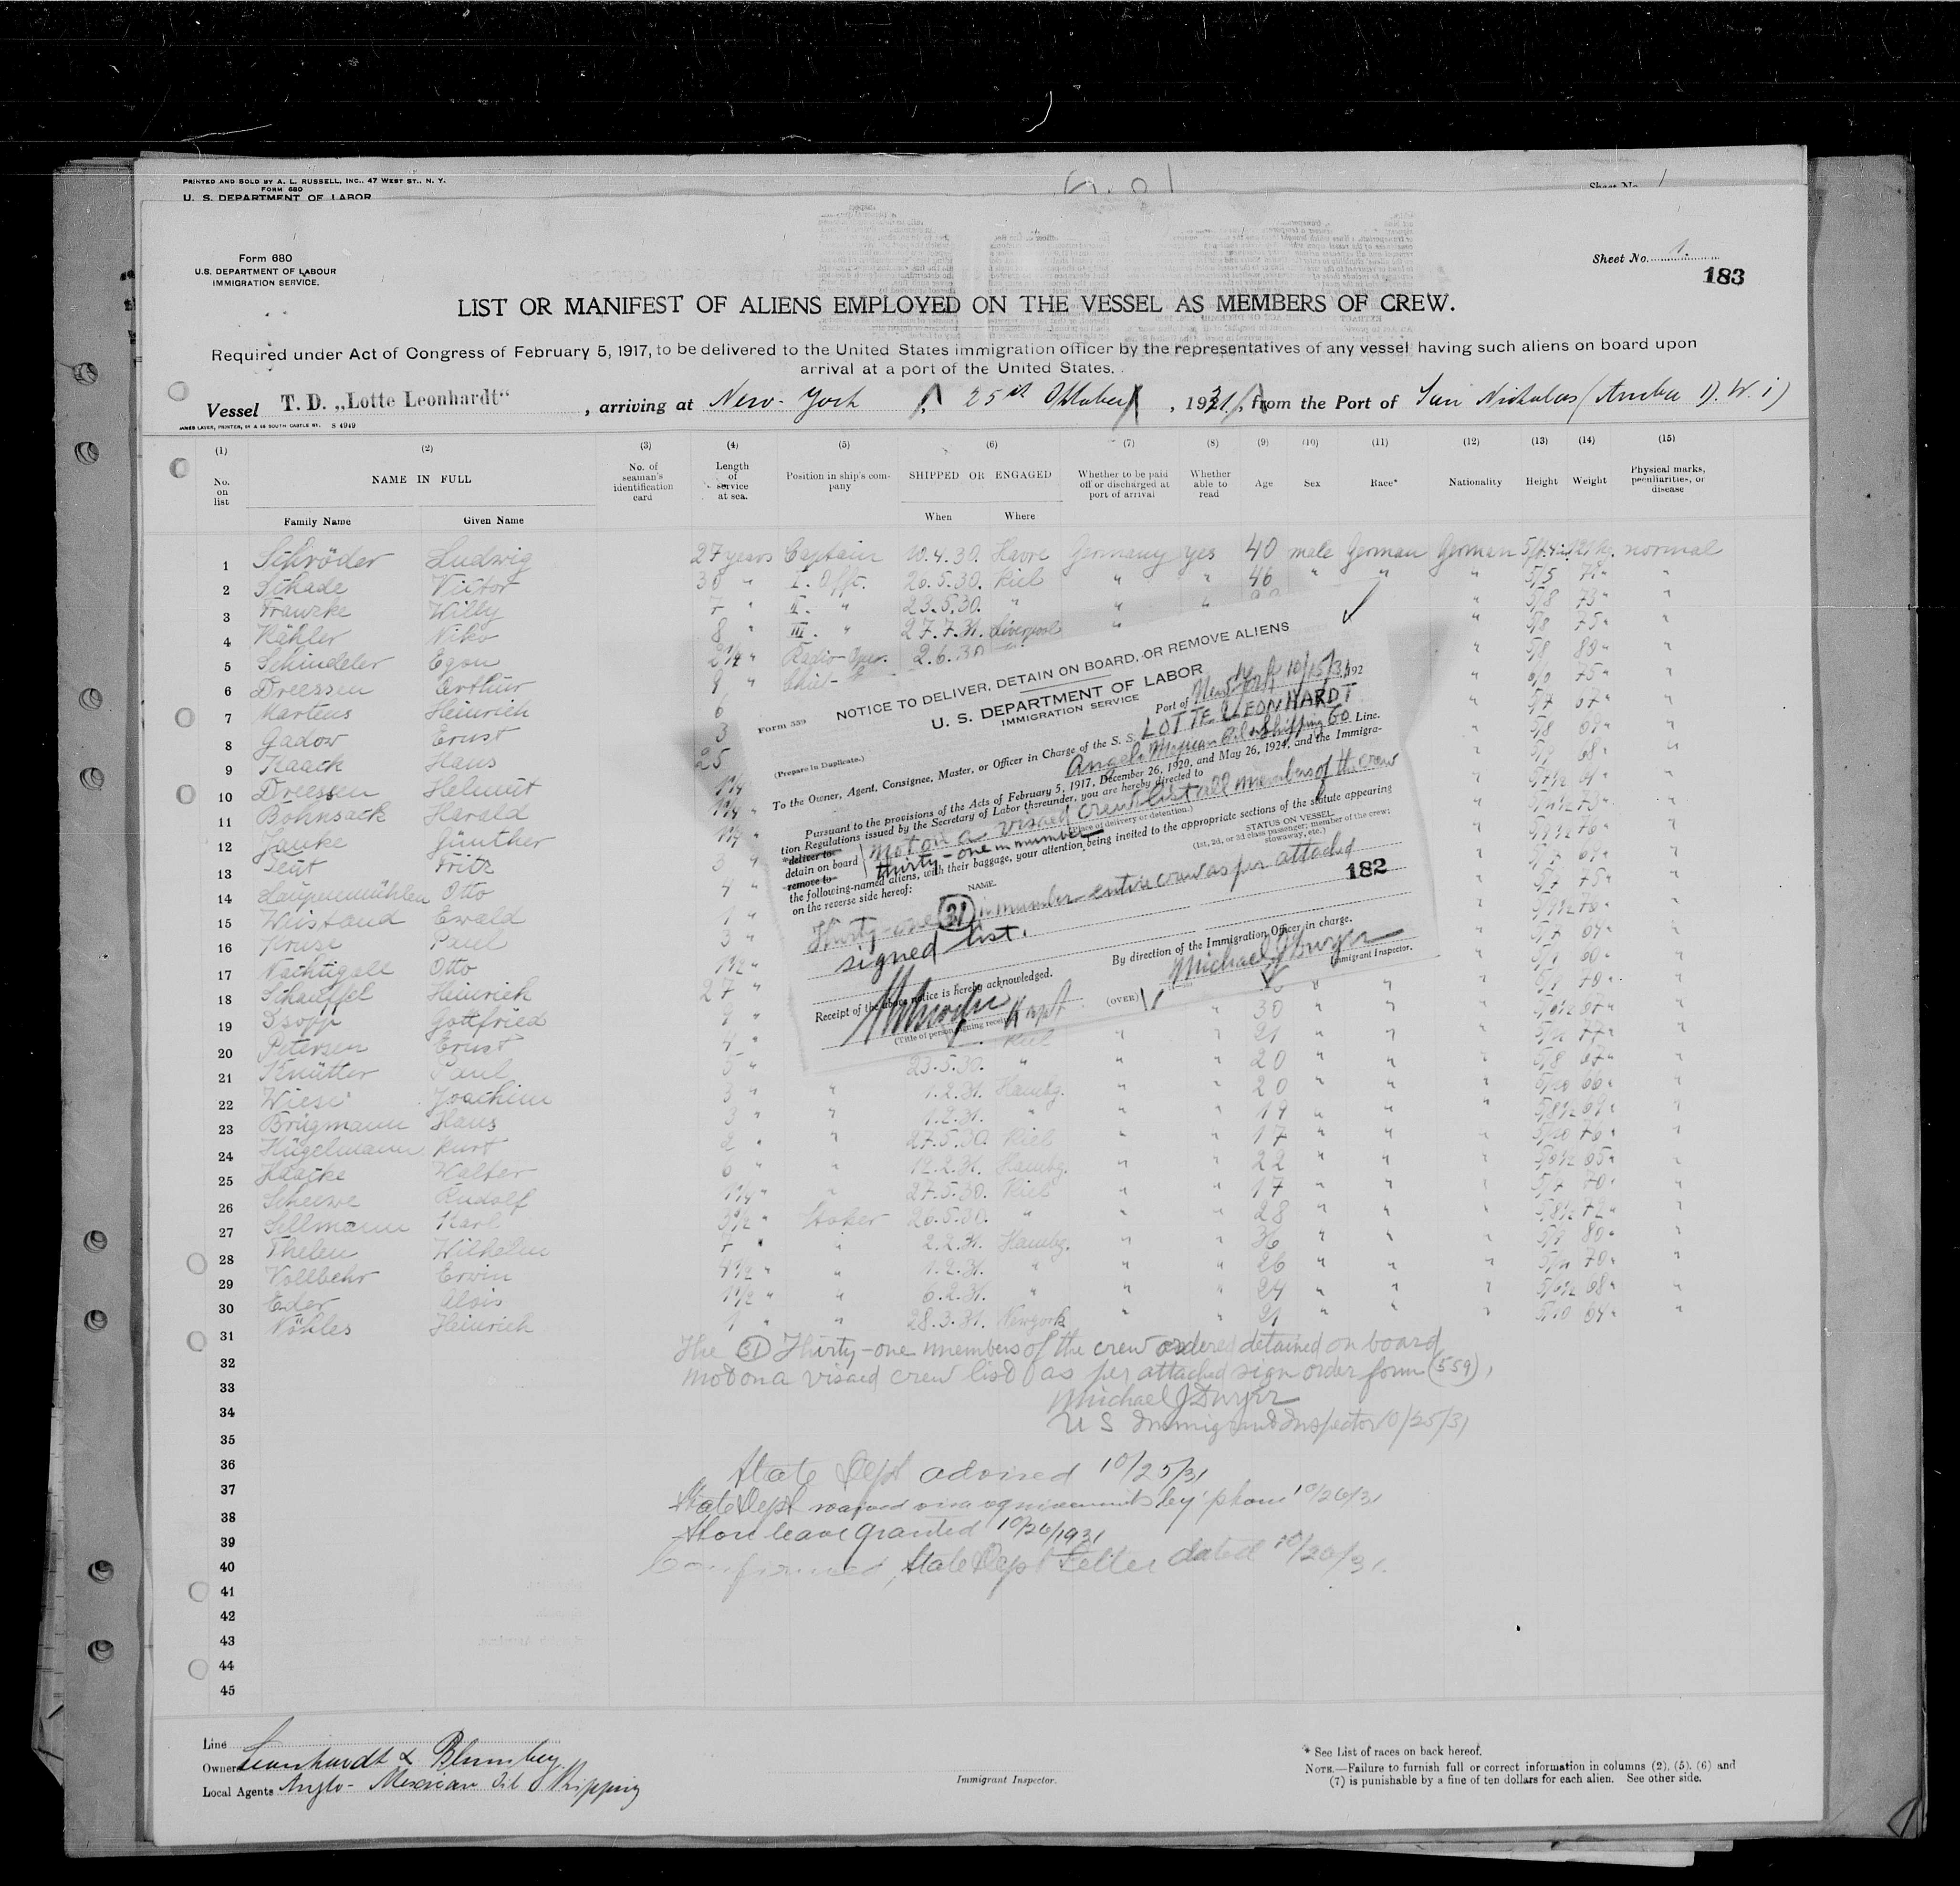 PRINTED AND SOLD BY A. L. RUSSELL, INC., 47 WEST ST., N. Y.
FORM 680
U. S. DEPARTMENT OF LABOR
Sheet No. 1
Form 680
U.S. DEPARTMENT OF LABOUR
IMMIGRATION SERVICE.
Sheet No. 1.
183
LIST OR MANIFEST OF ALIENS EMPLOYED ON THE VESSEL AS MEMBERS OF CREW.
Required under Act of Congress of February 5, 1917, to be delivered to the United States immigration officer by the representatives of any vessel having such aliens on board upon
arrival at a port of the United States.
Vessel T. D. „Lotte Leonhardt“ , arriving at New-York, 25th Oktober, 1931, from the Port of San Nicholas (Aruba D. W. i)
(1) (2) (3) (4) (5) (6) (7) (8) (9) (10) (11) (12) (13) (14) (15)
No. on list NAME IN FULL No. of seaman's identification card Length of service at sea. Position in ship's company SHIPPED OR ENGAGED Whether to be paid off or discharged at port of arrival Whether able to read Age Sex Race* Nationality Height Weight Physical marks, peculiarities, or disease
Family Name Given Name When Where
1 Schröder Ludwig 27 years Captain 10.4.30. Havre Germany yes 40 male German German normal
2 Schade Victor 30 " I. Offr. 26.5.30. Kiel " " 46 " " " 5/5 "
3 Franzke Willy 7 " II. " 23.5.30. " " " " 5/8 73 " "
4 Kähler Niko 8 " III. " 27.7.31. Liverpool " " 5/8 75 " "
5 Schindeler Egon 2 1/4 " Radio-Oper. 2.6.30 " 5/8 80 " "
6 Dreessen Arthur 9 " Chief- " 6/0 75 " "
7 Martens Heinrich 6 " 5/7 67 " "
8 Gadow Ernst 3 " 5/8 "
9 Kaack Hans 25 " 68 " "
10 Dreessen Helmut 1 1/4 " "
11 Bohnsack Harald 1 1/4 " " "
12 Janke Günther " "
13 Teut Fritz 3 " " "
14 Laupenmühlen Otto 4 " " 5/7 75 " "
15 Wiistand Ewald 1 " " "
16 Kruse Paul 3 " " 5/7 "
17 Nachtigall Otto 1 1/2 " " "
18 Schauffel Heinrich 27 " " " " "
19 Gottfried 9 " " 30 " " " "
20 Petersen Ernst 4 " Kiel " " 21 " " " 77 " "
21 Knütter Paul 5 " 23.5.30. " " " 20 " " " 5/8 67 " "
22 Wiese Joachim 3 " " 1.2.31. Hambg. " " 20 " " " 5/10 66 " "
23 Brügmann Hans 3 " " 1.2.31. " " " 19 " " " 5/8 1/2 69 " "
24 Hügelmann Kurt 2 " " 27.5.30. Kiel " " 17 " " " 5/10 76 " "
25 Haacke Walter 6 " " 12.2.31. Hambg. " " 22 " " " "
26 Scheewe Rudolf 1 1/4 " " 27.5.30. Kiel " " 17 " " " 5/7 70 " "
27 Sellmann Karl 3 1/2 " Stoker 26.5.30. " " " 28 " " " 5/8 1/2 72 " "
28 Thelen Wilhelm 7 " " 2.2.31. Hambg. " " 36 " " " 80 " "
29 Vollbehr Erwin 4 1/2 " " 1.2.31. " " " 26 " " " 70 " "
30 Eder Alois 1 1/2 " " 6.2.31. " " " 24 " " " 68 " "
31 Nöhles Heinrich 1 " " 28.3.31. Newyork " " 21 " " " 5/10 64 " "
32
33
34
35
36
37
38
39
40
41
42
43
44
45
Form 559
NOTICE TO DELIVER, DETAIN ON BOARD, OR REMOVE ALIENS
U. S. DEPARTMENT OF LABOR
IMMIGRATION SERVICE
(Prepare in Duplicate.)
Port of New York 10/25/31, 192
To the Owner, Agent, Consignee, Master, or Officer in Charge of the S. S. LOTTE LEONHARDT
Anglo Mexican Oil & Shipping Co Line.
Pursuant to the provisions of the Acts of February 5, 1917, December 26, 1920, and May 26, 1924, and the Immigra-
tion Regulations issued by the Secretary of Labor thereunder, you are hereby directed to
*deliver to
detain on board
remove to
not on a visaed crew list all members of the crew
(Place of delivery or detention.)
thirty-one in number
the following-named aliens, with their baggage, your attention being invited to the appropriate sections of the statute appearing
on the reverse side hereof:
NAME
STATUS ON VESSEL
(1st, 2d, or 3d class passenger; member of the crew; stowaway, etc.)
Thirty-one (31) in number entire crew as per attached
signed list.
182
By direction of the Immigration Officer in charge.
Michael J Dwyer
Immigrant Inspector.
Receipt of the above notice is hereby acknowledged.
Kapt
(Title of person signing receipt)
(OVER)
The (31) Thirty-one members of the crew ordered detained on board
not on a visaed crew list (as per attached sign order form (559),
Michael J Dwyer
U S Immigrant Inspector 10/25/31
State Dept advised 10/25/31
State Dept waived visa requirements by phone 10/26/31
Shore leave granted 10/26/1931
Confirmed, State Dept Letter dated 10/26/31.
Line
Owners Leonhardt & Blumberg
Local Agents Anglo-Mexican Oil Shipping
Immigrant Inspector.
* See List of races on back hereof.
NOTE.—Failure to furnish full or correct information in columns (2), (5), (6) and
(7) is punishable by a fine of ten dollars for each alien. See other side.